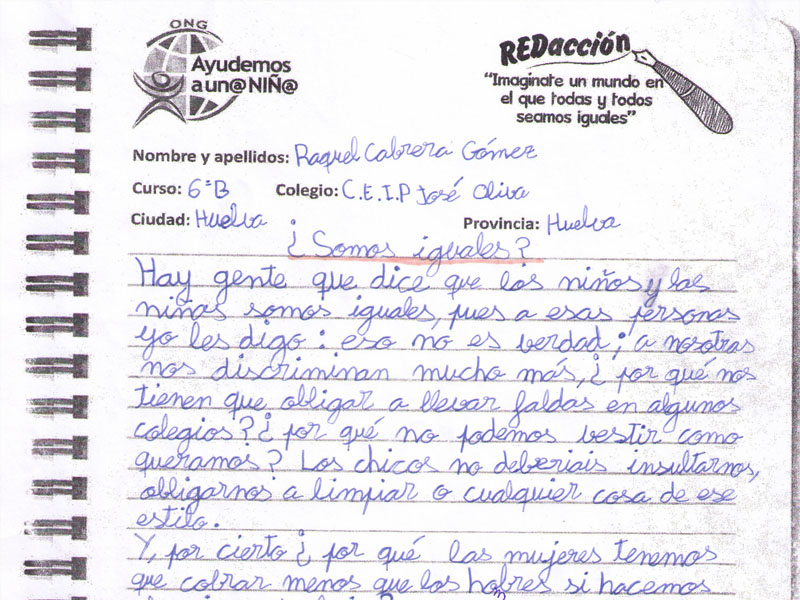 ONG
Ayudemos
a un@ NIÑ@
REDacción
“Imagínate un mundo en
el que todas y todos
seamos iguales”
Nombre y apellidos: Raquel Cabrera Gómez
Curso: 6ºB Colegio: C.E.I.P José Oliva
Ciudad: Huelva Provincia: Huelva
¿Somos iguales?
Hay gente que dice que los niños y las
niñas somos iguales, pues a esas personas
yo les digo: eso no es verdad; a nosotras
nos discriminan mucho más, ¿por qué nos
tienen que obligar a llevar faldas en algunos
colegios? ¿por qué no podemos vestir como
queramos? Los chicos no deberiais insultarnos,
obligarnos a limpiar o cualquier cosa de ese
estilo.
Y, por cierto ¿por qué las mujeres tenemos
que cobrar menos que los hombres si hacemos